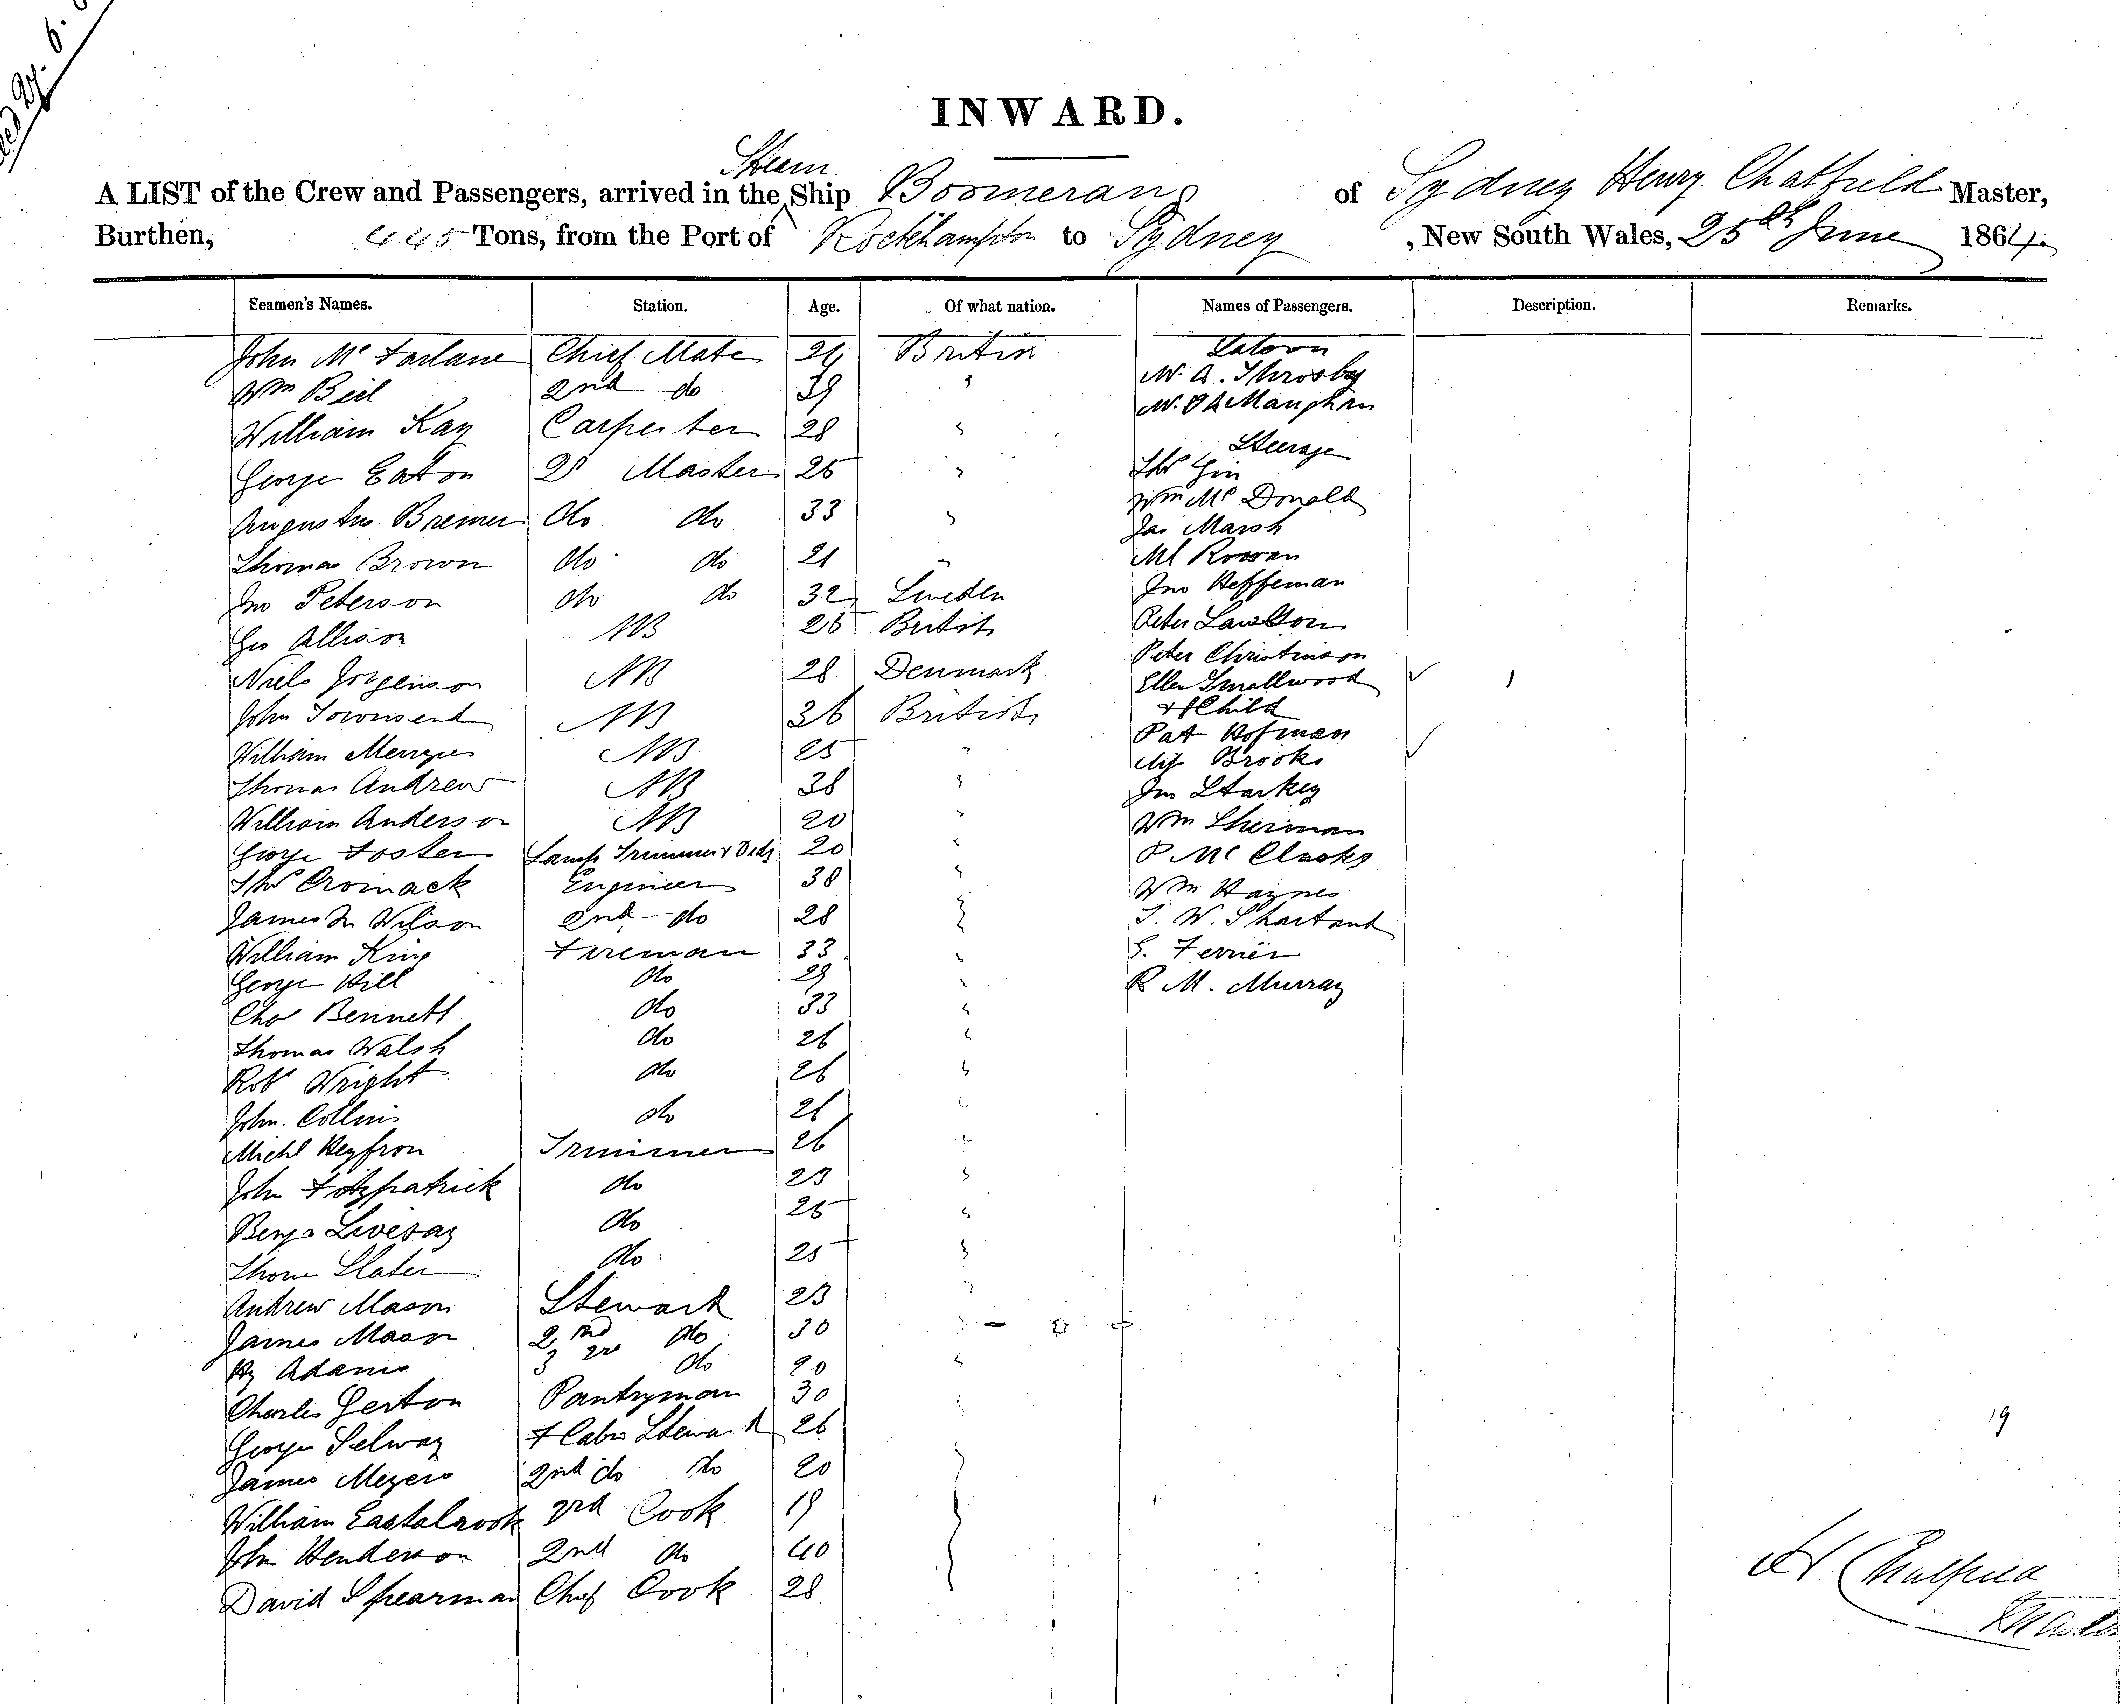 INWARD.
Steam
A LIST of the Crew and Passengers, arrived in the Ship Boomerang of Sydney Henry Chatfield Master,
Burthen, 445 Tons, from the Port of Rockhampton to Sydney, New South Wales, 25th June 1864
Seamen's Names. Station. Age. Of what nation. Names of Passengers. Description. Remarks.
John Mc Farlane Chief Mate 24 British Saloon
Wm Beil 2nd do 39 " Mr. A. Throsby
Mr. Maughan
William Kay Carpenter 28 "
Steerage
George Eaton Qr Master 25 " Thos Gin
Wm Mc Donald
Augustus Bremer do do 33 " Jas Marsh
Thomas Brown do do 21 " Ml Rowan
Jno Peterson do do 32 Sweden Jno Heffernan
Geo Allison AB 26 British Peter Lawson
Peter Christinson
Niels Jorgenson AB 28 Denmark Ellen Smallwood
John Townsend AB 36 British + 1 Child
Pat Hofman
William Menzies AB 25 " Brooks
Thomas Andrews AB 38 " Jno Starkey
William Anderson AB 20 " Wm Sherman
George Foster Lamp Trimmer & 20 " P Mc Clasky
Thos Cromack Engineer 38 " Wm Haynes
James M Wilson 2nd do 28 " T. W. Shartand
William King Fireman 33 " G. Ferrier
George Hill do 29 " R M. Murray
Chas Bennett do 33 "
Thomas Walsh do 26 "
Robt Wright do 26 "
John Collins do 26 "
Michl Heyfron Trimmer 26 "
John Fitzpatrick do 23 "
Benja Livesay do 25 "
Thom Slater do 25 "
Andrew Mason Steward 23 "
James Mason 2nd do 30 "
Hy Adams 3rd do 20 "
Charles Gerton Pantryman 30 "
George Selway F Cabin Steward 26
James Meyers 2nd do do 20
19
William Eastabrook 3rd Cook 19
John Henderson 2nd do 40
David Spearman Chief Cook 28
H Chatfield